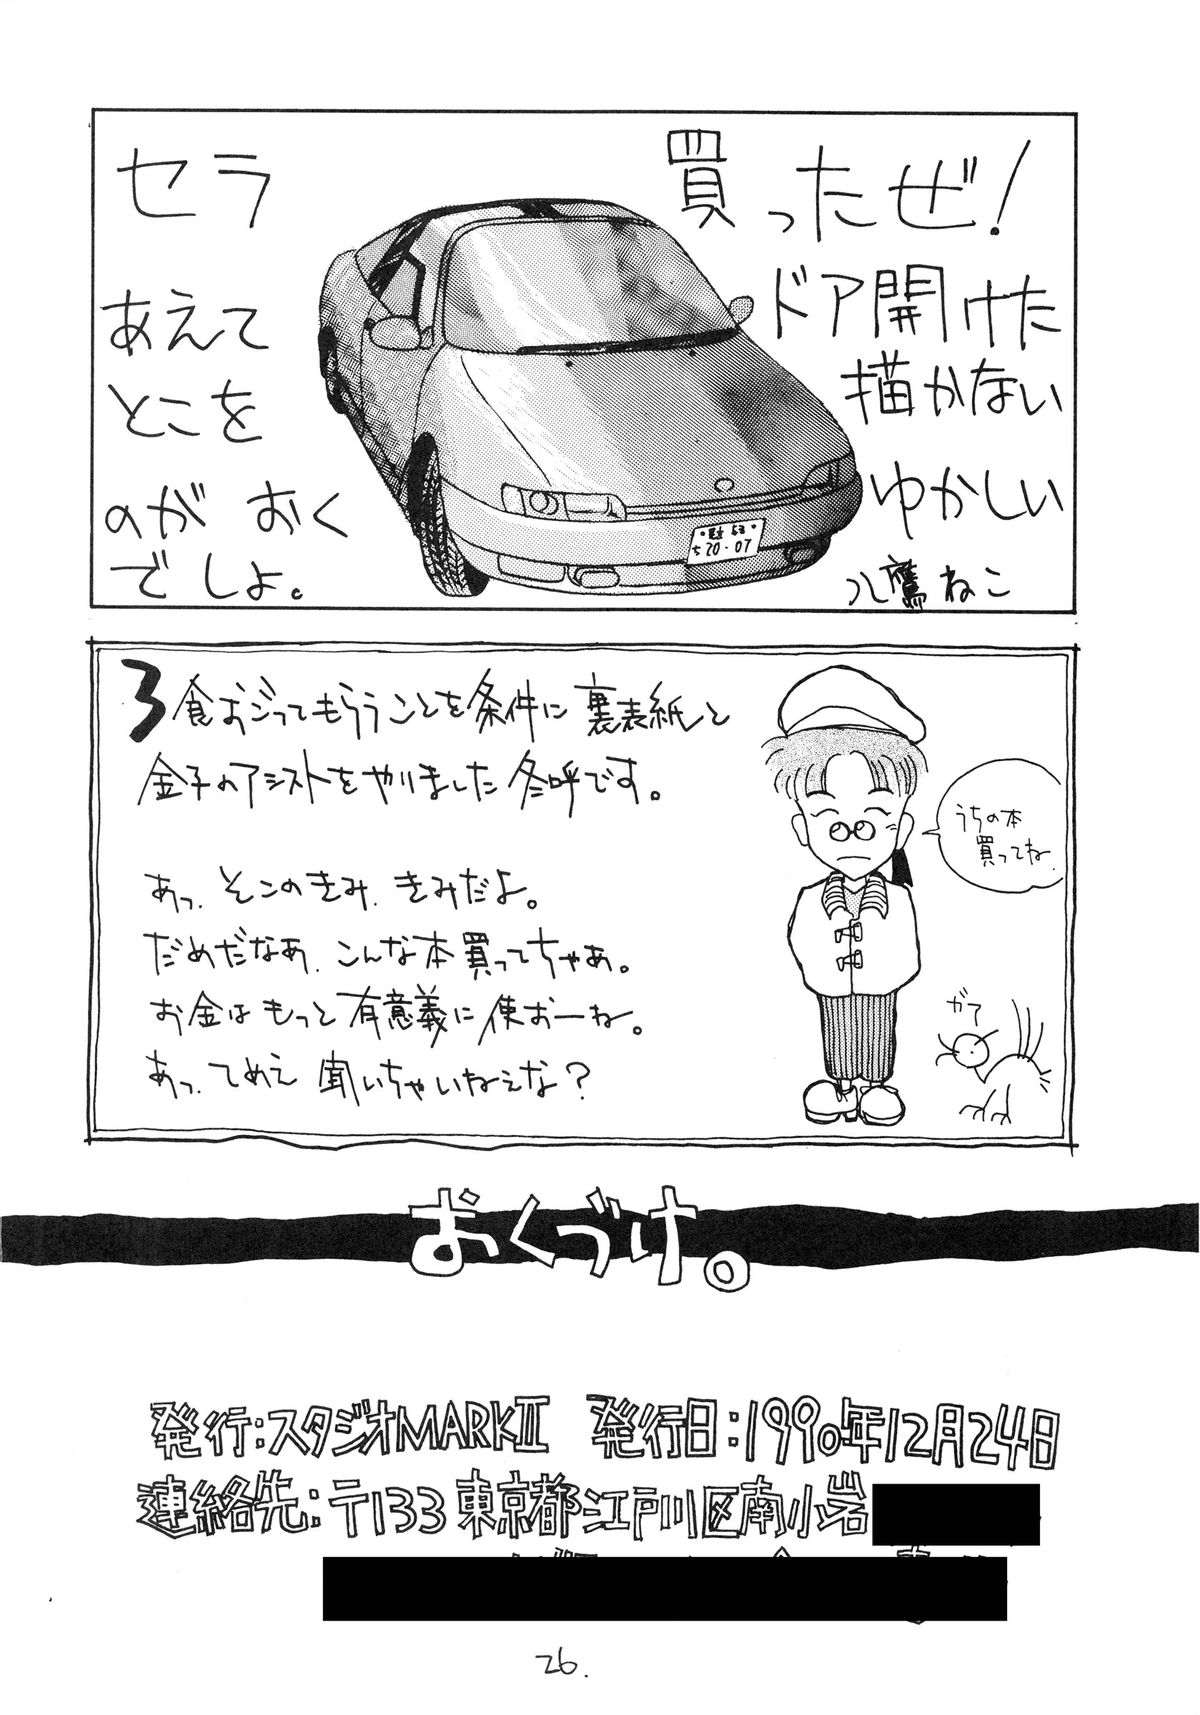 セラ 買ったぜ!
あえて ドア開けた
とこを 描かない
のが おく ゆかしい
でしょ。 八鷹ねこ
・足立 53・
ち 20-07
3食おごってもらうことを条件に 裏表紙と
金子のアシストをやりました冬呼です。
あっ、そこのきみ、きみだよ。
だめだなあ、こんな本買ってちゃあ。
お金はもっと有意義に使おーね。
あっ、てめえ 聞いちゃいねえな?
うちの本
買ってね
ガァ
おくづけ。
発行:スタジオMARKⅡ 発行日:1990年12月24日
連絡先:〒133 東京都江戸川区南小岩
26.